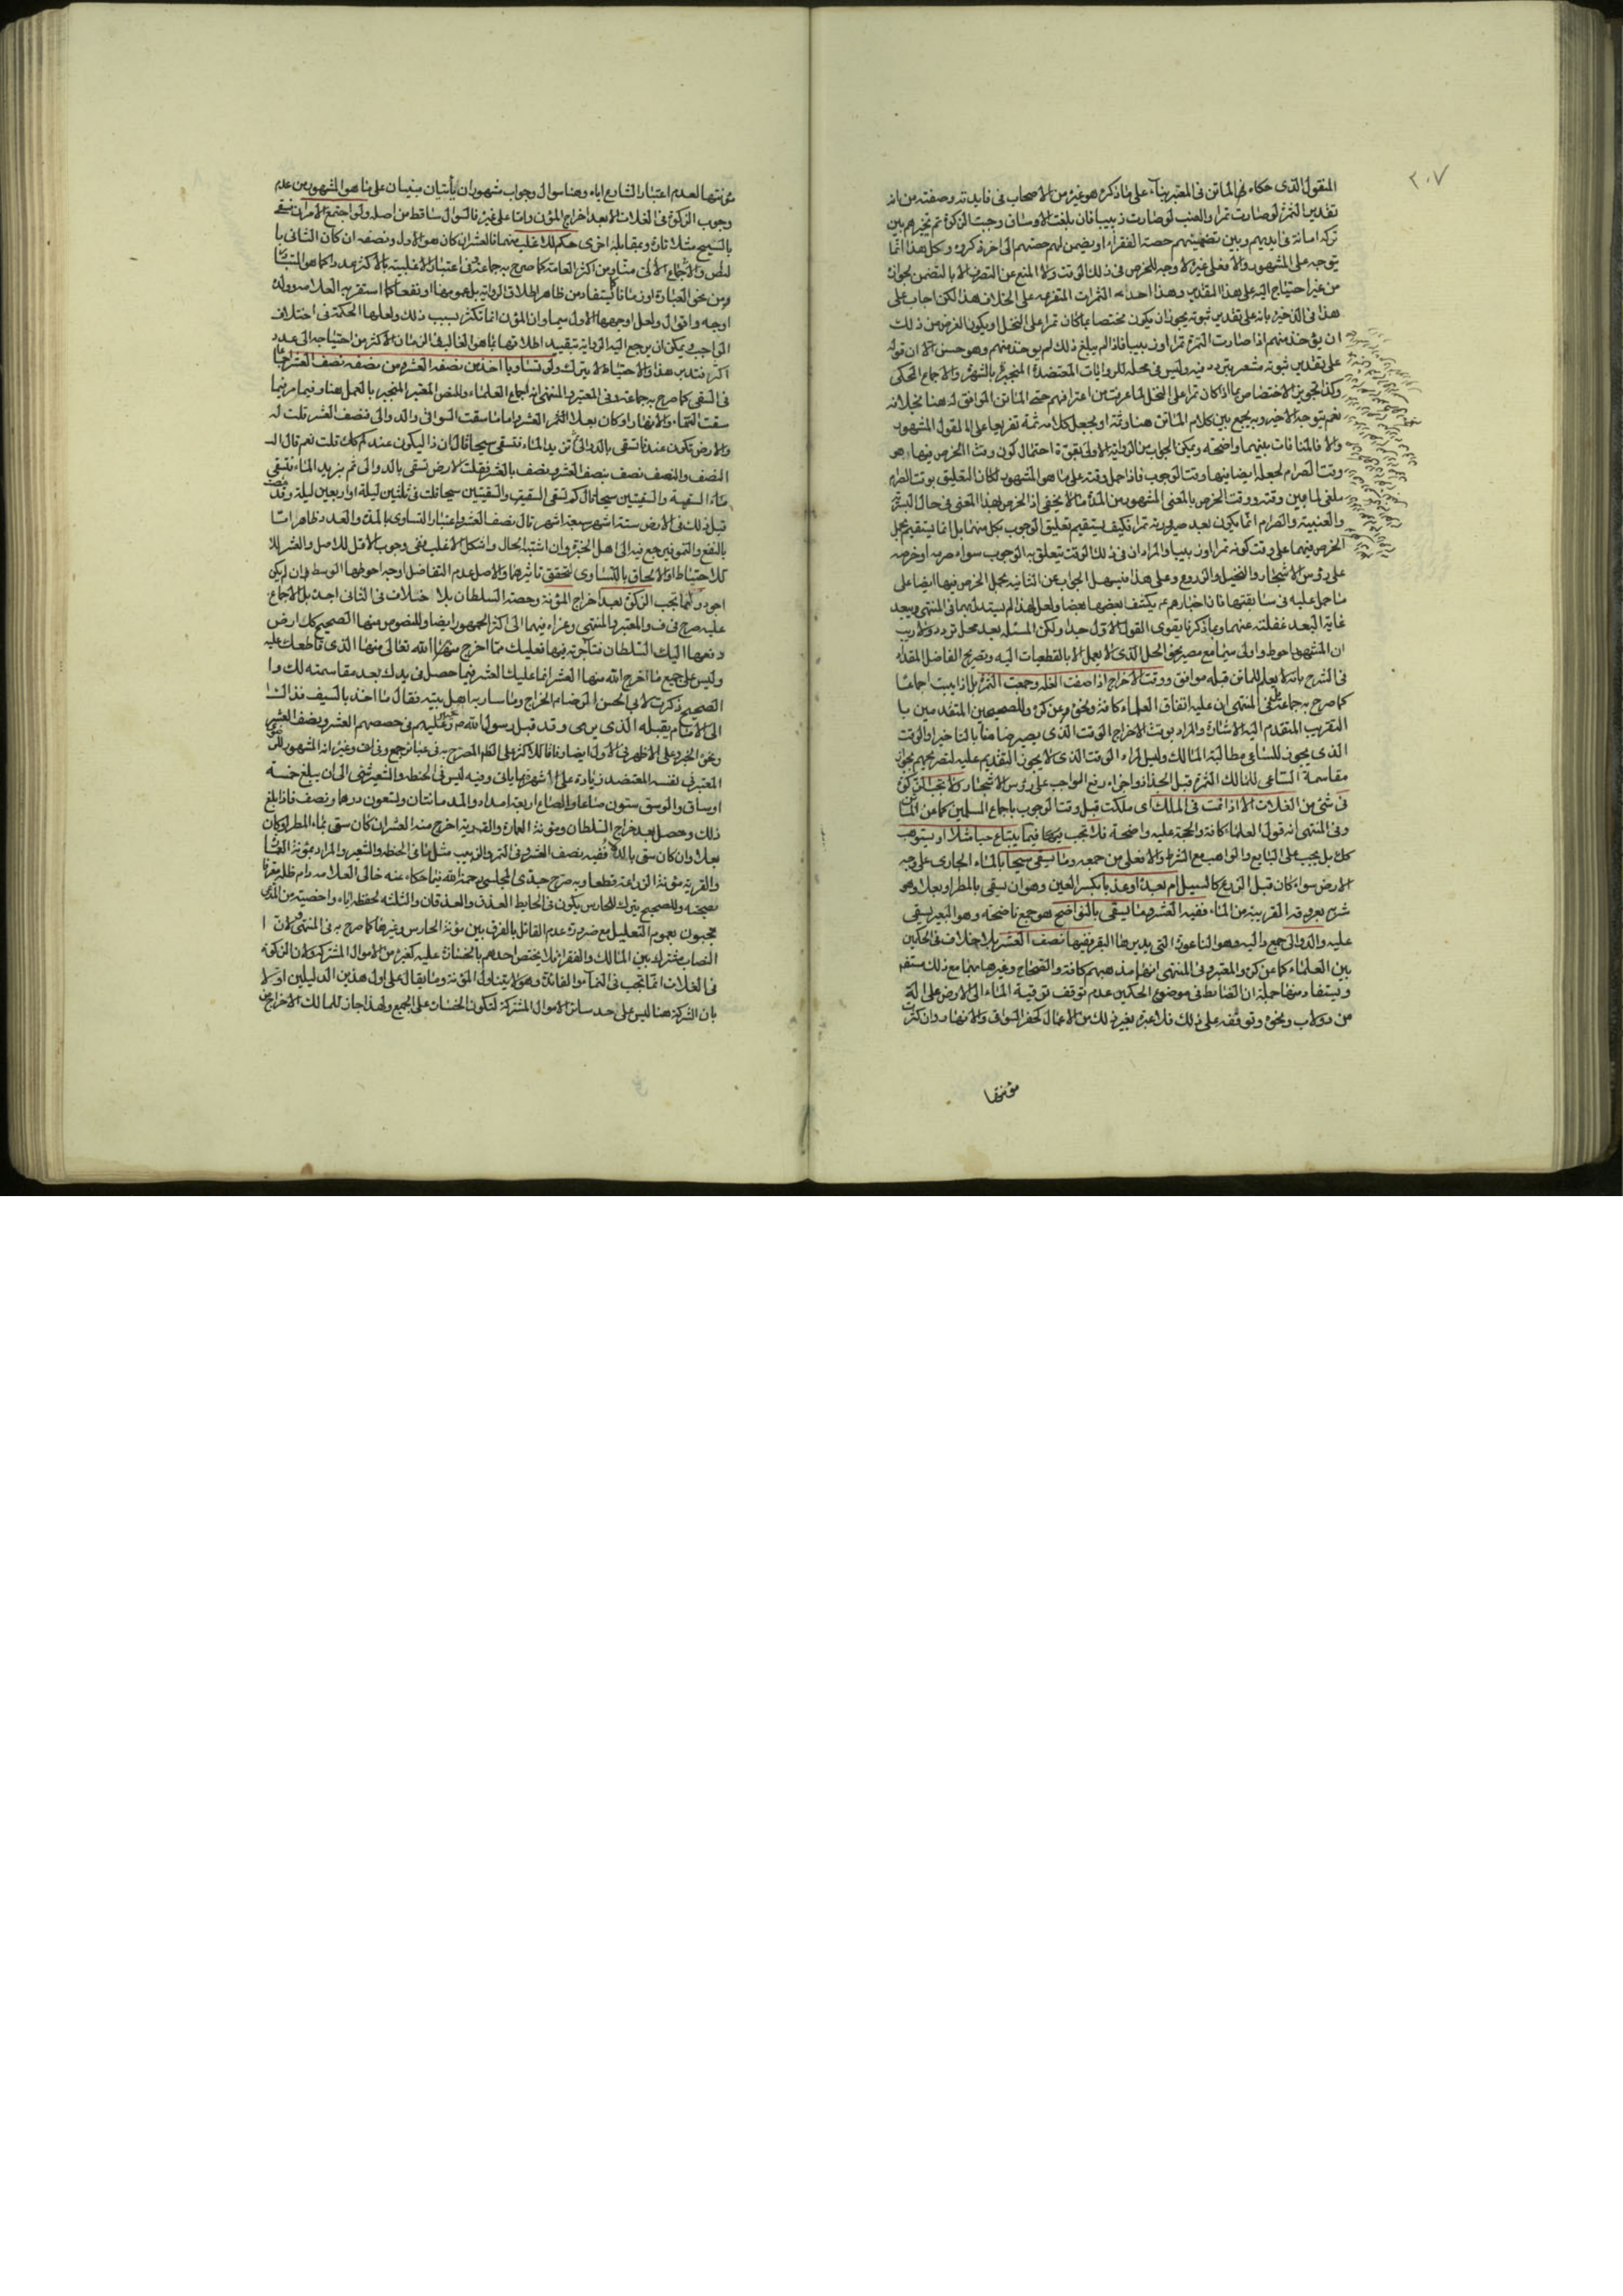 ٢٠٧
المنقول الذى حكاه فى المعتبر بناء على ما ذكره هو غيره من الاصحاب فى فايدته وصفته من انه
تقدير الثمرة لو صارت تمرا والعنب لو صارت زبيبا فان بلغت الاوساق وجبت الزكوة ثم يخيرهم بين
تركه امانة فى ايديهم وبين تضمينهم حصة الفقراء او يضمن لهم حصتهم الى اخر ذكره وكل هذا انما
يتوجه على المشهور والا فعلى غيره لا وجه للخرص فى ذلك الوقت ولا المنع عن التصرف الا بالتضمن بجوازه
من غير احتياج اليه على هذا التقدير وهذا احد الثمرات المتفرعه على الخلاف هذا لكن اجاب على
هذا فى الذخيرة بانه على تقدير ثبوته يجوز ان يكون مختصا بما كان تمرا على النخل او يكون الغرض من ذلك
ان يؤخذ منهم اذا صارت الثمرة تمرا او زبيبا فاذا لم يبلغ ذلك لم يوخذ منهم وهو حسن الا ان قوله
على تقدير ثبوته مشعر بتردد فيه وليس فى محله للروايات المعتضدة المنجبرة بالشهرة والاجماع المحكى
وكذا تجويز الاختصاص بما اذا كان تمرا على النخل لما عرفت من اعترافهم حتى الماتن الموافق له هنا بخلافه
نعم يتوجه الاخير وبه يجمع بين كلام الماتن هنا وثمة او يجعل كلامه ثمة تفريعا على المنقول المشهور
والا فالمنافات بينهما واضحة ويمكن الجواب عن الرواية الاولى بقوة احتمال كون وقت الخرص فيها هو
وقت الصرام لجعله ايضا فيها وقت الوجوب فاذا حمل وقته على ما هو المشهور لكان التعليق بوقت الصرام
ملغى لما بين وقته ووقت الخرص بالمعنى المشهور من المدة ما لا يخفى اذ الخرص بهذا المعنى فى حال البسرية
والعنبية والصرام انما يكون بعد صيرورته تمرا فكيف يستقيم تعليق الوجوب بكل منهما بل انما يستقيم بحمل
الخرص فيهما على وقت كونه تمرا او زبيبا والمراد ان فى ذلك الوقت يتعلق به الوجوب سواء صرمه او خرصه
على رؤس الاشجار والنخيل والزروع وعلى هذا فيسهل الجواب عن الثانيه بحمل الخرص فيها ايضا على
ما حمل عليه فى سابقتها فان اخبارهم ع يكشف بعضها بعضا ولعل لهذا لم يستدل بهما فى المنتهى ويبعد
غاية البعد غفلته عنهما وبما ذكرنا يقوى القول الاول جدا ولكن المسئله بعد محل تردد ولا ريب
ان المشهور احوط واولى سيما مع مصير نحو الحلى الذى لا يعمل الا بالقطعيات اليه وتصريح الفاضل المقداد
فى الشرح بانه لا يعلم للماتن قبله موافق ووقت الاخراج اذا صفت الغله وجمعت الثمرة بلا اذا يبست اجماعا
كما صرح به جماعة ففى المنتهى ان عليه اتفاق العلماء كافة ونحوه وعن كره وللصحيحين المتقدمين با
التقريب المتقدم اليه الاشارة والمراد بوقت الاخراج الوقت الذى يصير ضامنا بالتاخير او الوقت
الذى يجوز للساعى مطالبة المالك وليس المراد الوقت الذى لا يجوز التقديم عليه لتصريحهم بجواز
مقاسمة الساعى للمالك الثمرة قبل الجذاذ واجزاء دفع الواجب على رؤس الاشجار ولا تجب الزكوة
فى شئ من الغلات الا اذا نمت فى الملك اى ملكت قبل وقت الوجوب باجماع المسلمين كما عن الماتن
وفى المنتهى انه قول العلماء كافة والحجة عليه واضحة فلا تجب فيها فيما يبتاع حبا مثلا او يستوهب
كك بل يجب على البايع والواهب مع الشرط والا فعلى من جمعه وما يسقى سيحا بالماء الجارى على وجه
الارض سواء كان قبل الزرع كالنيل ام بعده او عذيا بكسر العين وهو ان يسقى بالمطر او بعلا وهو
شربه بعروقه القريبة من الماء ففيه العشر وما يسقى بالنواضح هو جمع ناضحه وهو البعير يسقى
عليه والدوالى جمع دالية وهو الناعورة التى يديرها البقر ففيها نصف العشر بلا خلاف فى الحكمين
بين العلماء كما عن كره والمعتبر وفى المنتهى انهما مذهبهم كافة والصحاح وغيرها بهما مع ذلك مستفيضة
ويستفاد منها جملة ان الضابط فى موضوع الحكمين عدم توقف ترقية الماء الى الارض على الة
من دولاب ونحوه وتوقفه على ذلك فلا عبرة بغير ذلك من الاعمال كحفر السواقى والانهار وان كثرت
مؤنتها
مؤنتها لعدم اعتبار الشارع اياه وهنا سوال وجواب مشهوران يأتيان مبنيان على ما هو المشهور من عدم
وجوب الزكوة فى الغلات الا بعد اخراج المؤن واما على غيره فالسؤال ساقط من اصله ولو اجتمع الامران فيسقى
بالسيح مثلا تارة وبمقابله اخرى حكم للاغلب منهما فالعشر ان كان هو الاول ونصفه ان كان الثانى با
لنص والاجماع الا من شاذ من اكثر العامة كما صرح به جماعة وفى اعتبار الاغلبية بالاكثر عددا كما هو المتبادر
من نحو العبارة او زمانا كما يستفاد من ظاهر اطلاق الرواية بل عمومها او نفعا كما استقر به العلامه وولده
اوجه واقوال ولعل اوجهها الاول سيما وان المؤن انما تكثر بسبب ذلك ولعلها الحكمة فى اختلاف
الواجب ويمكن ان يرجع اليه الرواية بتقييد اطلاقها بما هو الغالب فى الزمان الاكثر من احتياجه الى عدد
اكثر فتدبر هذا والاحتياط لا يترك ولو تساويا اخذ من نصفه العشر ومن نصفه نصف العشر اجماعا
فى السقى كما صرح به جماعة وفى المعتبر والمنتهى انه اجماع العلماء وللنص المعتبر المنجبر بالعمل هنا وفيما مر فيما
سقت السماء والانهار او كان بعلا العشر واما ما سقت السوانى والدوالى فنصف العشر قلت له
والارض تكون عندنا تسقى بالدوالى ثم يزيد الماء فتسقى سيحا قال ان ذا ليكون عندكم كك قلت نعم قال
النصف والنصف نصف بنصف العشر ونصف بالعشر فقلت الارض تسقى بالدوالى ثم يزيد الماء فتسقى
السقية والسقيتين سيحا قال كم تسقى السقية والسقيتين سيحا قلت فى ثلثين ليلة او اربعين ليلة وقد مكث
قبل ذلك فى الارض ستة اشهر سبعة اشهر قال نصف العشر واعتبار التساوى بالمدة والعدد ظاهر اما
بالنفع والنمو فيرجع فيه الى اهل الخبرة وان اشتبه الحال واشكل الاغلب ففى وجوب الاقل للاصل والعشر للا
حتياط او الالحاق بالتساوى لتحقق تاثيرهما والاصل عدم التفاضل اوجه احوطها الوسط ان لم يكن
اجود وانما تجب الزكوة بعد اخراج المؤنة وحصة السلطان بلا خلاف فى الثانى اجده بل الاجماع
عليه صرح فى ف والمعتبر والمنتهى وعزاه فيهما الى اكثر الجمهور ايضا وللنصوص منها الصحيح كل ارض
دفعها اليك السلطان فتاجرته فيها فعليك مما اخرج الله تعالى منها الذى قاطعك عليه
وليس على جميع ما اخرج الله منها العشر انما عليك العشر فيما حصل فى يدك بعد مقاسمته لك وا
الصحيح ذكرت لابى الحسن الرضا ع الخراج وما سار به اهل بيته فقال ما اخذ بالسيف فذلك
الى الامام يقبله الذى يرى وقد قبل رسول الله ص خيبر وعليهم فى حصصهم العشر ونصف العشر
المعتبر فى نفسه المعتضد زيادة على الشهرة بما ياتى وفيه ليس فى الحنطه والشعير شئ الى ان يبلغ خمسة
اوساق والوسق ستون صاعا والصاع اربعة امداد والمد مائتان وتسعون درهما ونصف فاذا بلغ
ذلك وحصل بعد خراج السلطان ومؤنة العمارة والقرية اخرج منه العشر ان كان سقى بماء المطر او كان
بعلا وان كان سقى بالدلاء ففيه نصف العشر وفى التمر والزبيب مثل ما فى الحنطه والشعير والمراد بمؤنة العمارة
والقرية مؤنة الزراعة قطعا وبه صرح جدى المجلسى رحمه الله فيما حكاه عنه خالى العلامه دام ظله
وللصحيح يترك للحارس يكون فى الحايط العذق والعذقان والثلثه لحفظه اياه
بعموم التعليل مع ضرورة عدم القائل بالفرق بين مؤنة الحارس وغيرها كما صرح به فى المنتهى ولان
النصاب مشترك بين المالك والفقراء فلا يختص احدهم بالخسارة عليه كغيره من الاموال المشتركة ولان الزكوة
فى الغلات انما تجب فى النماء والفائدة وهو لا يتناول المؤنة وما يقال على اول هذين الدليلين اولا
بان الشركة هنا ليس على حد سائر الاموال المشتركة لتكون الخسارات على الجميع ولهذا جاز للمالك الاخراج من